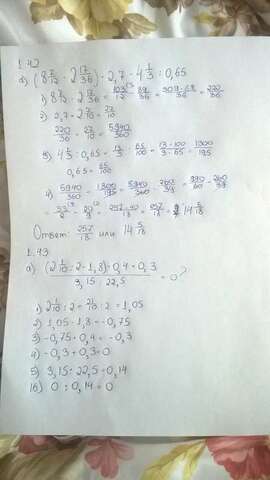 1.42
a) (8 7/12 - 2 17/36) · 2,7 - 4 1/3 : 0,65
1) 8 7/12 - 2 17/36 = 103/12 - 89/36 = 309-89/36 = 220/36
2) 2,7 = 2 7/10 = 27/10
220/36 · 27/10 = 5940/360
3) 4 1/3 : 0,65 = 13/3 : 65/100 = 13·100/3·65 = 1300/195
0,65 = 65/100
4) 5940/360 - 1300/195 = 5940/360 - 260/39 = 990/60 - 260/39
= 257/18 = 14 5/18
Ответ: 257/18 или 14 5/18
1.43
a) (2 1/10 : 2 - 1,8) · 0,4 + 0,3
3,15 : 22,5 = 0?
1) 2 1/10 : 2 = 21/10 : 2 = 1,05
2) 1,05 - 1,8 = -0,75
3) -0,75 · 0,4 = -0,3
4) -0,3 + 0,3 = 0
5) 3,15 : 22,5 = 0,14
16) 0 : 0,14 = 0